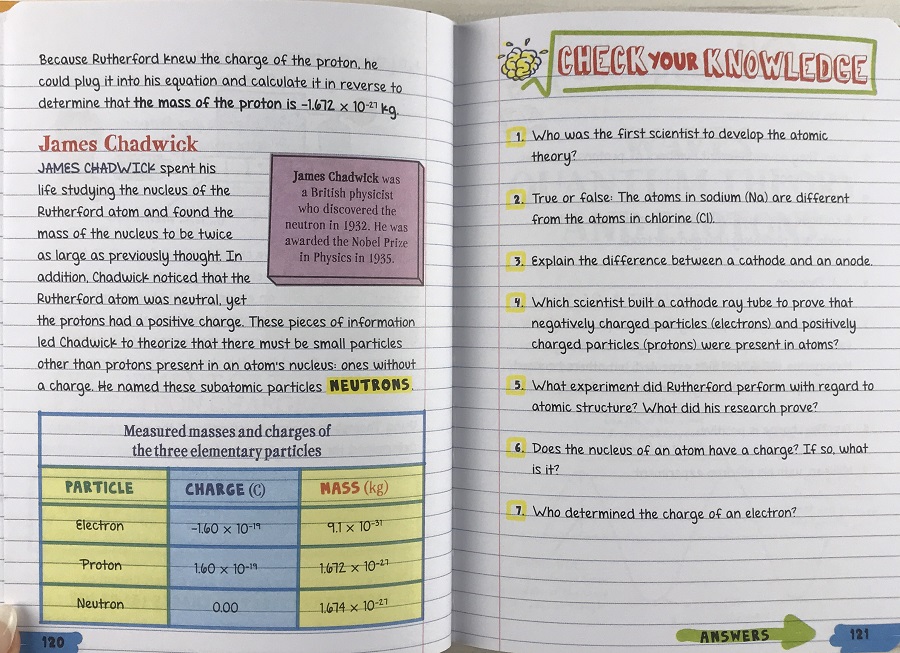 Because Rutherford knew the charge of the proton, he
could plug it into his equation and calculate it in reverse to
determine that the mass of the proton is -1.672 × 10⁻²⁷ kg.
James Chadwick
JAMES CHADWICK spent his
life studying the nucleus of the
Rutherford atom and found the
mass of the nucleus to be twice
as large as previously thought. In
addition, Chadwick noticed that the
Rutherford atom was neutral, yet
the protons had a positive charge. These pieces of information
led Chadwick to theorize that there must be small particles
other than protons present in an atom's nucleus: ones without
a charge. He named these subatomic particles NEUTRONS.
James Chadwick was
a British physicist
who discovered the
neutron in 1932. He was
awarded the Nobel Prize
in Physics in 1935.
Measured masses and charges of
the three elementary particles
PARTICLE CHARGE (C) MASS (kg)
Electron -1.60 × 10⁻¹⁹ 9.1 × 10⁻³¹
Proton 1.60 × 10⁻¹⁹ 1.672 × 10⁻²⁷
Neutron 0.00 1.674 × 10⁻²⁷
120
CHECK YOUR KNOWLEDGE
1. Who was the first scientist to develop the atomic
theory?
2. True or false: The atoms in sodium (Na) are different
from the atoms in chlorine (Cl).
3. Explain the difference between a cathode and an anode.
4. Which scientist built a cathode ray tube to prove that
negatively charged particles (electrons) and positively
charged particles (protons) were present in atoms?
5. What experiment did Rutherford perform with regard to
atomic structure? What did his research prove?
6. Does the nucleus of an atom have a charge? If so, what
is it?
7. Who determined the charge of an electron?
ANSWERS
121